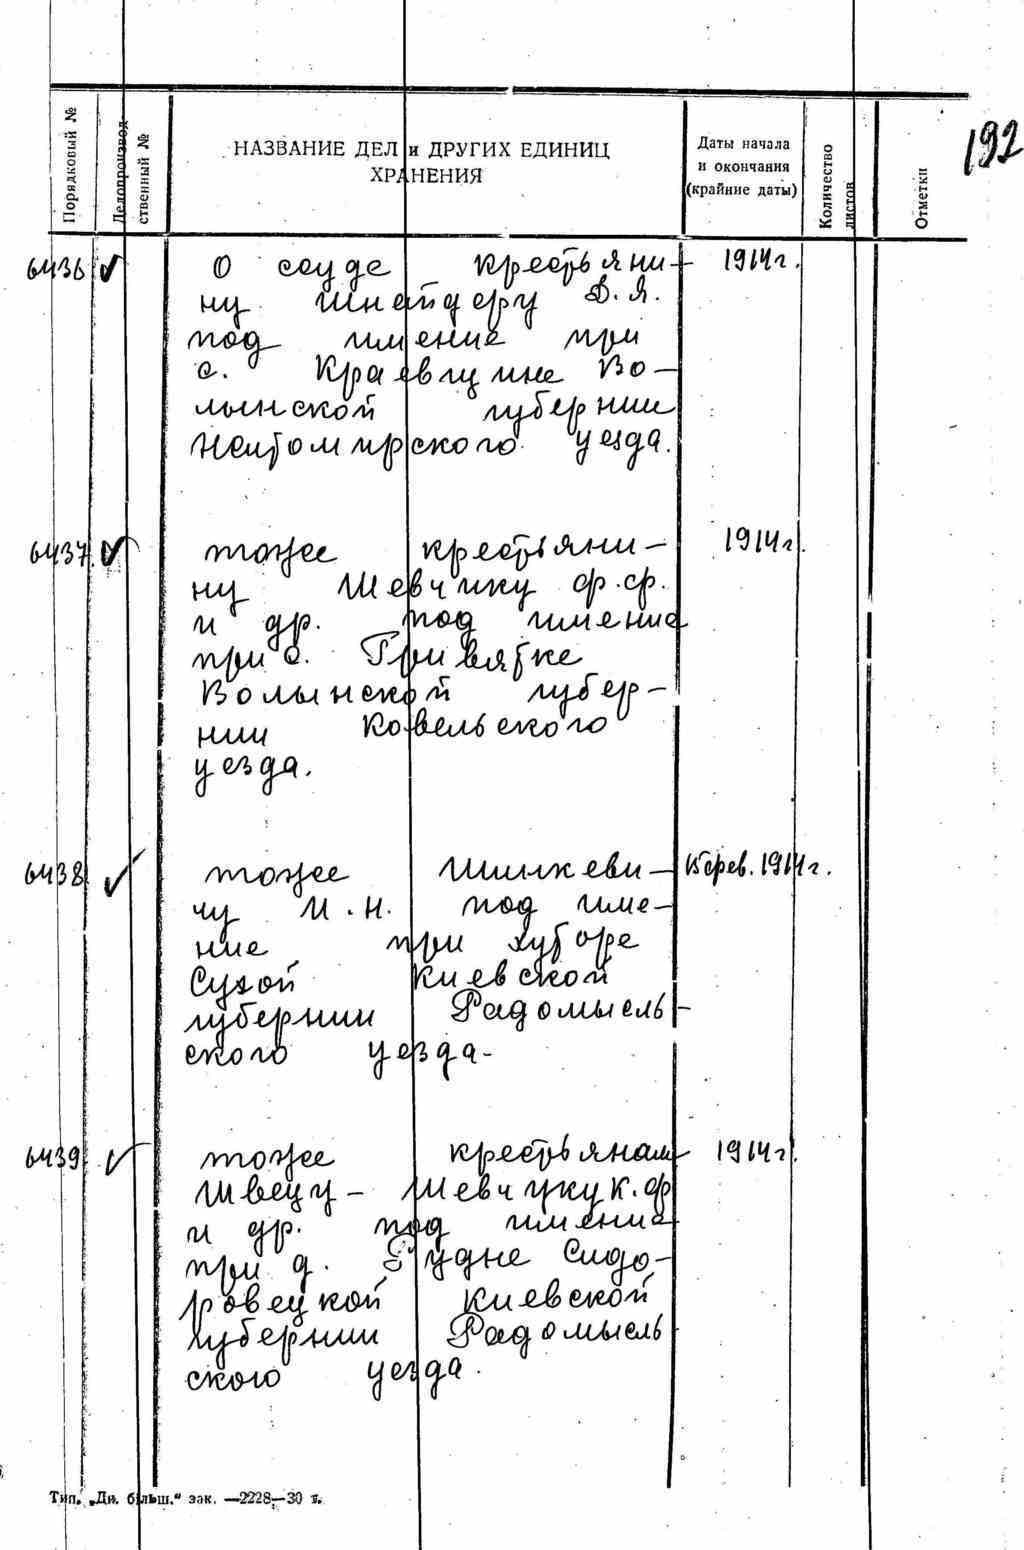 192
Порядковый №
Делопроизвод-
ственный №
НАЗВАНИЕ ДЕЛ и ДРУГИХ ЕДИНИЦ
ХРАНЕНИЯ
Даты начала
и окончания
(крайние даты)
Количество
листов
Отметки
6436 ✓ О ссуде крестьяни- 1914 г.
ну Шнайдеру Д. Я.
под имение при
с. Краевщине Во-
лынской губернии
Житомирского уезда.
6437 ✓ тоже крестьяни- 1914 г.
ну Шевчику Ф. Ф.
и др. под имение
при с. Привятке
Волынской губер-
нии Ковельского
уезда.
6438 ✓ тоже Шимкеви- 15 фев. 1914 г.
чу И. Н. под име-
ние при хуторе
Сухой Киевской
губернии Радомысль-
ского уезда.
6439 ✓ тоже крестьянам 1914 г.
Швецу - Шевчуку К. Ф
и др. под имение
при д. Рудне Сидо-
ровецкой Киевской
губернии Радомысль
ского уезда.
Тип. „Дн. більш." зак. —2228—30 т.